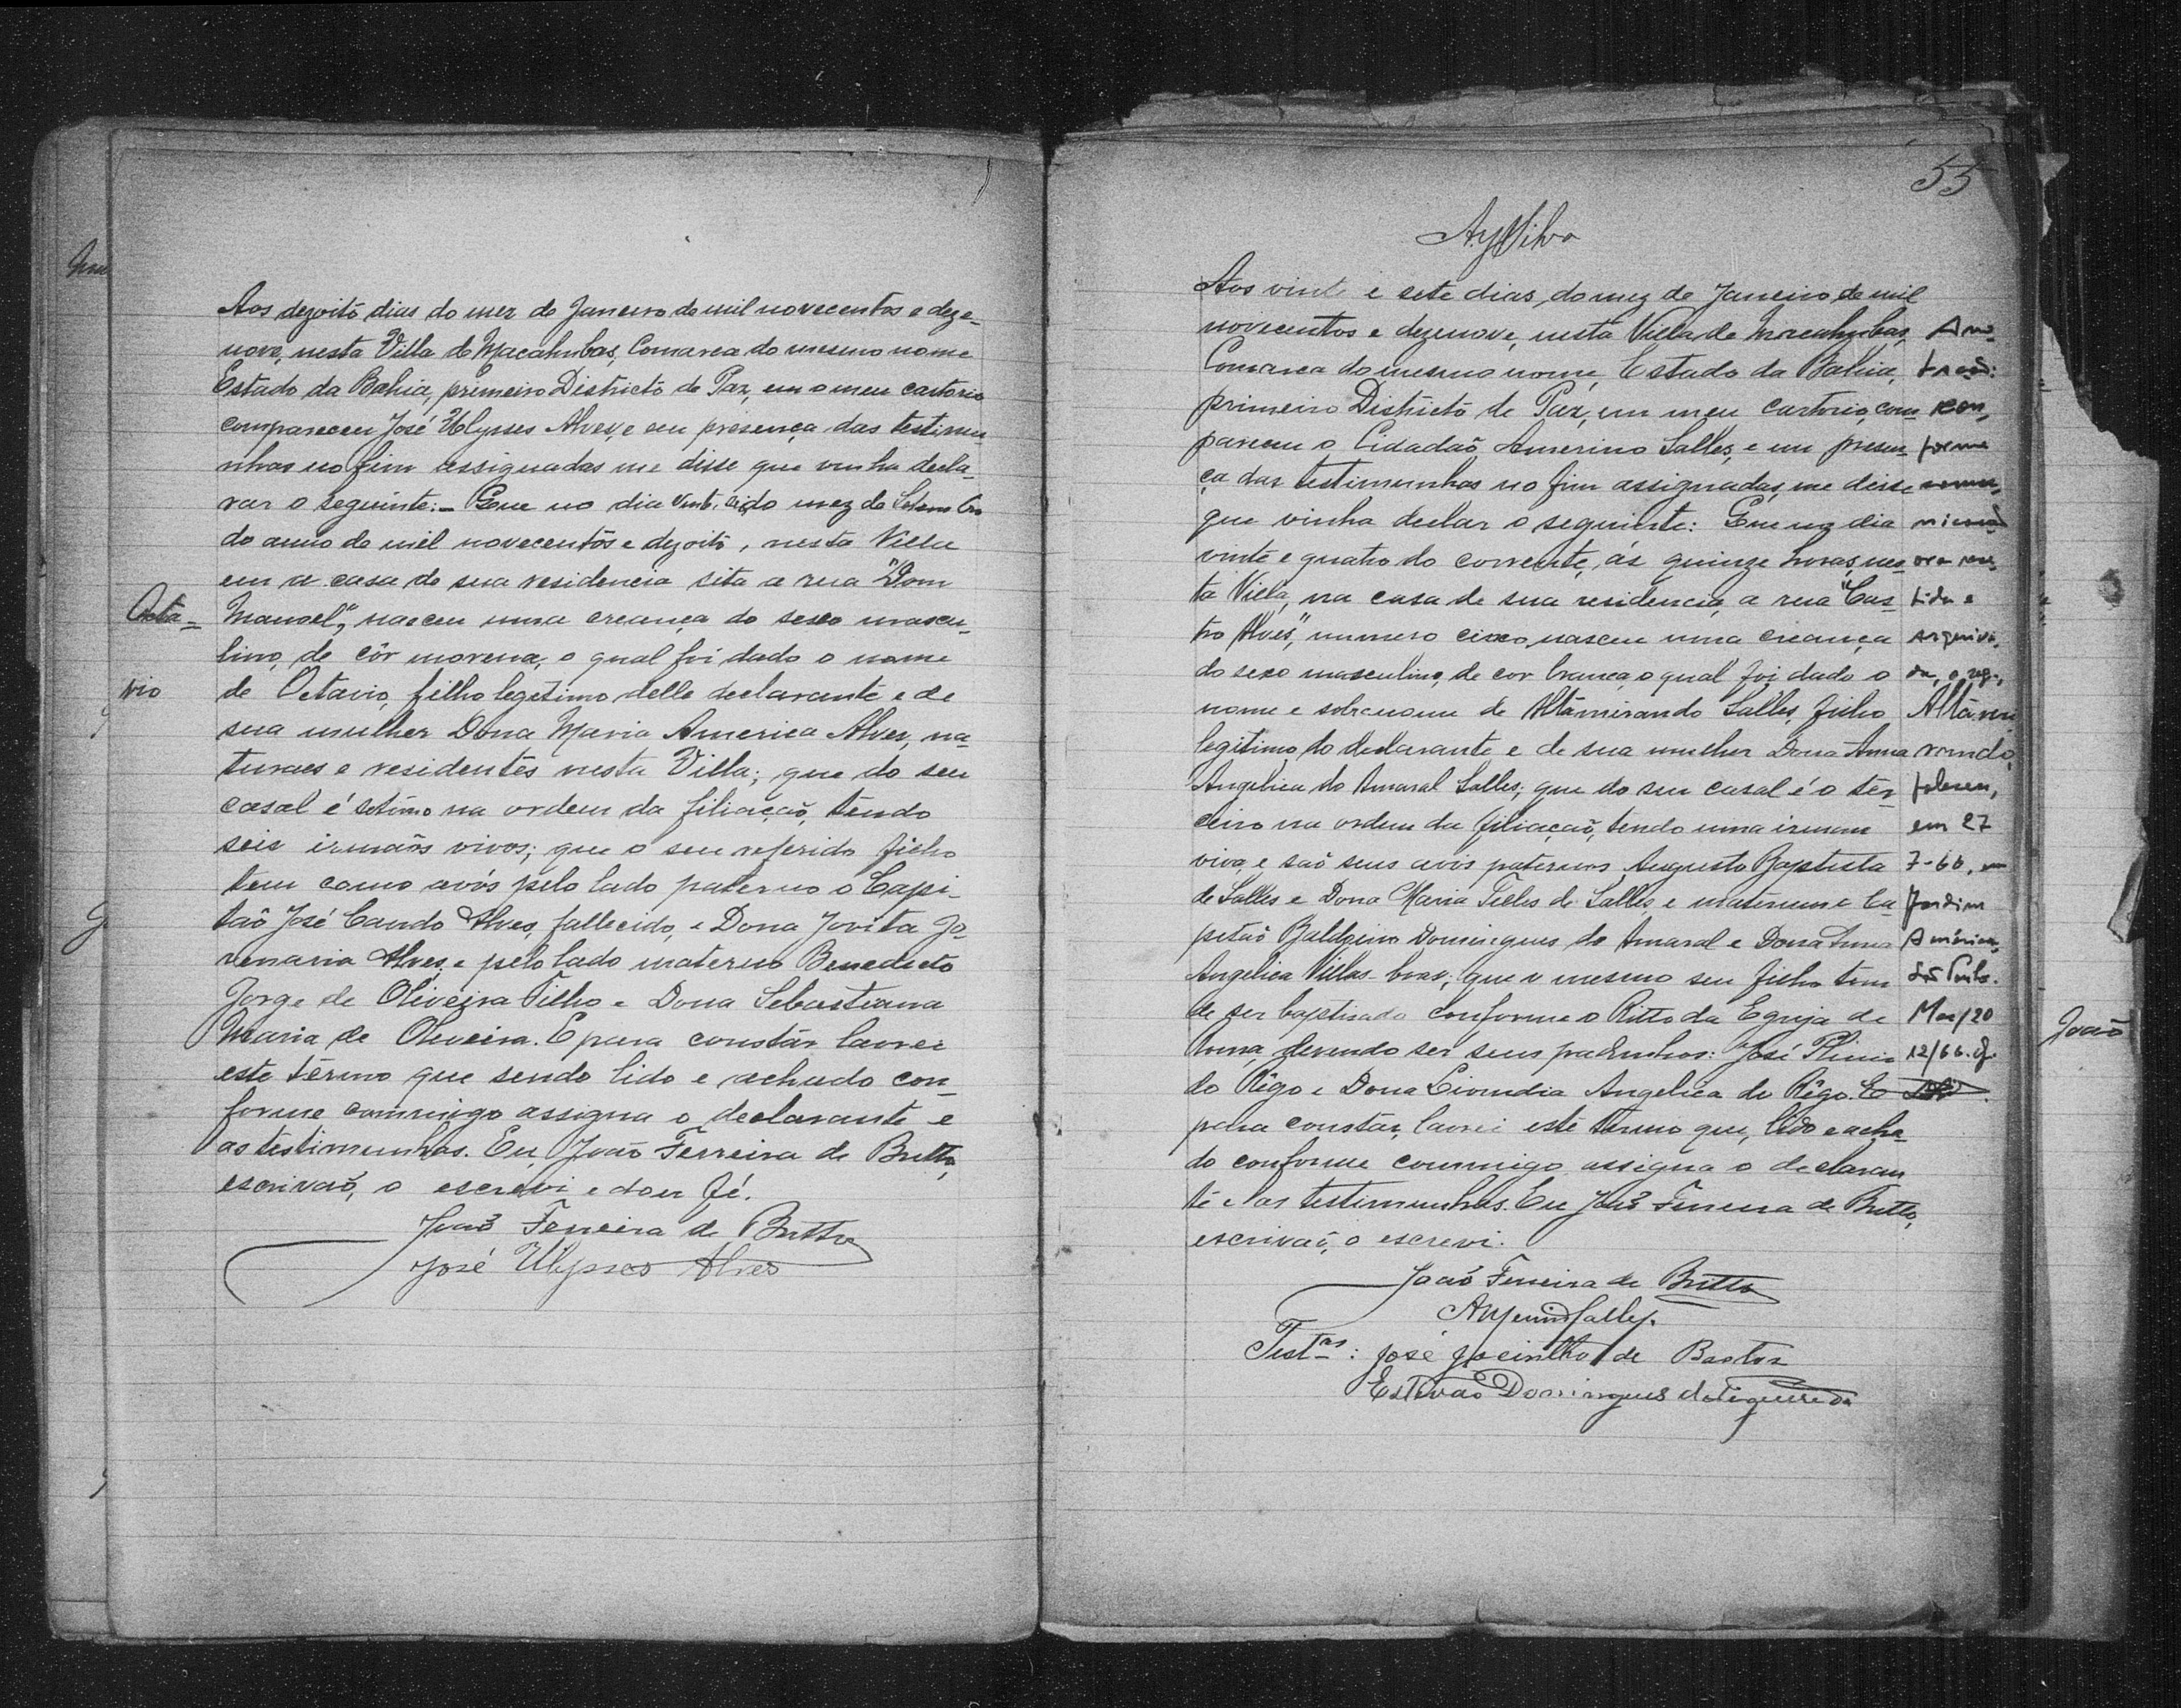 Octa=
vio
Aos dezoito dias do mez de Janeiro de mil novecentos e deze-
nove, nesta Villa de Macahubas, Comarca do mesmo nome
Estado da Bahia, primeiro Districto de Paz, em o meu cartorio
compareceu José Ulysses Alves, e em presença das testimu
nhas no fim assignadas me disse que vinha decla-
rar o seguinte:- Que no dia do mez de Setembro
do anno de mil novecentos e dezoito, nesta Villa
em a casa de sua residencia sita a rua "Dom
Manoel", nasceu uma creança do sexo mascu-
lino, de côr morena, o qual foi dado o nome
de Octavio, filho legitimo delle declarante e de
sua mulher Dona Maria America Alves, na-
turaes e residentes nesta Villa; que do seu
casal é setimo na ordem da filiação, tendo
seis irmãos vivos; que o seu referido filho
tem como avós pelo lado paterno o Capi-
tão José Alves, fallecido, e Dona Jovita
Alves, e pelo lado materno Benedicto
Jorge de Oliveira Filho e Dona Sebastiana
Maria de Oliveira. E para constár lavrei
este têrmo que sendo lido e achado con-
forme commigo assigna o declarante e
as testimunhas. Eu, João Ferreira de Britto,
escrivão, o escrevi e dou fé.
João Ferreira de Britto
José Ulysses Alves
55
Aos vinte e sete dias do mez de Janeiro de mil
novecentos e dezenove, nesta Villa de Macahubas,
Comarca do mesmo nome, Estado da Bahia,
primeiro Districto de Paz, em meu cartorio, com-
pareceu o Cidadão Amerino Salles, e em presen-
ça das testimunhas no fim assignadas, me disse
que vinha declar o seguinte: Que no dia
vinte e quatro do corrente, ás quinze horas, nes-
ta Villa, na casa de sua residencia, a rua "Cas
tro Alves", numero cinco, nasceu uma creança
do sexo masculino, de cor branca, o qual foi dado o
nome e sobrenome de Altamirando Salles, filho
legitimo do declarante e de sua mulher Dona Anna
Angelica do Amaral Salles; que do seu casal é o ter-
ceiro na ordem da filiação, tendo uma irman
viva, e são seus avós paternos Augusto Baptista
de Salles e Dona Maria Telles de Salles, e maternos Ca
pitão Baldoino Domingues do Amaral e Dona Anna
Angelica Villas-boas; que o mesmo seu filho tem
de ser baptisado conforme o Ritto da Egreja de
Roma, devendo ser seus padrinhos: José Plinio
do Rêgo e Dona Angelica do Rêgo. E
para constar, lavrei este têrmo que, lido e acha-
do conforme commigo assigna o declaran
te e as testimunhas. Eu João Ferreira de Britto,
escrivão, o escrevi.
João Ferreira de Britto
Amerino Salles.
Test.as: José Jacintho de Bastos
Estevão Domingues de Figueiredo
forme
tida e
arquiva-
da, o reg.,
Altami
rando,
faleceu,
em 27
7-66, em
Jardim
América,
São Paulo.
Mac/20
12/66.
João